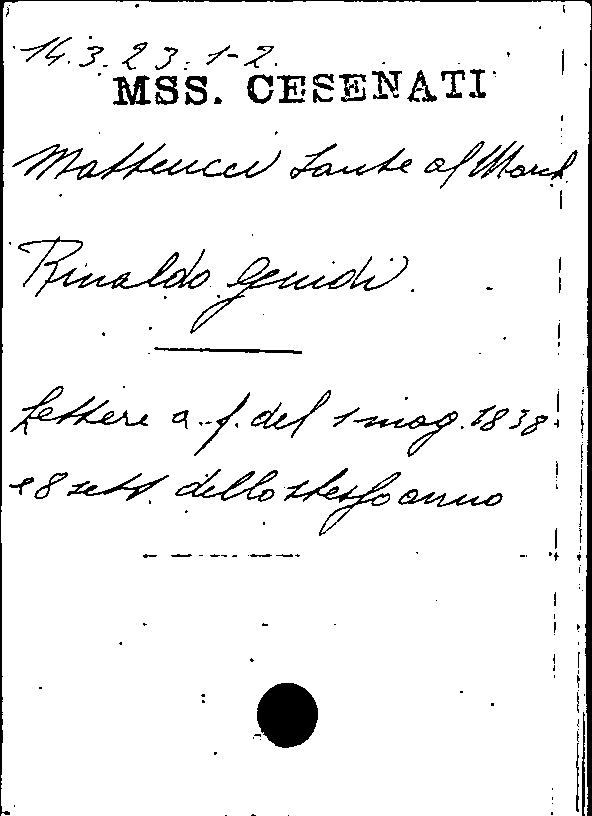 14.3.23.1-2.
MSS. CESENATI
Matteucci Sante al March
Rinaldo Guidi.
Lettere a. f. del 1 mag. 1838
e 8 sett. dello stesso anno